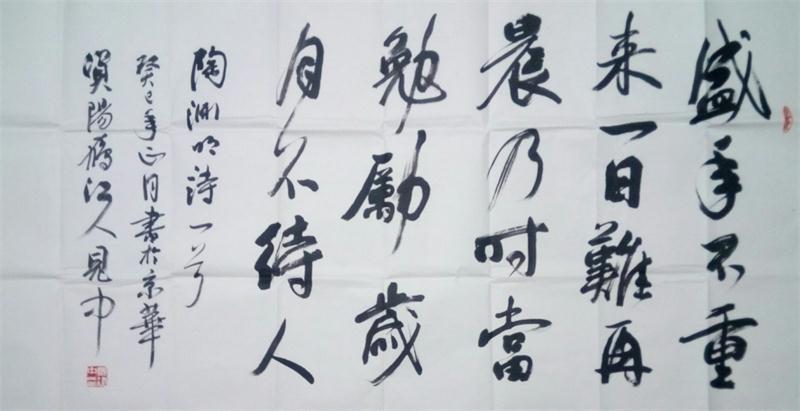 盛年不重
来一日難再
晨及时當
勉勵歲
月不待人
陶渊明诗一首
癸巳年正月書於京華
資陽雁江人見中